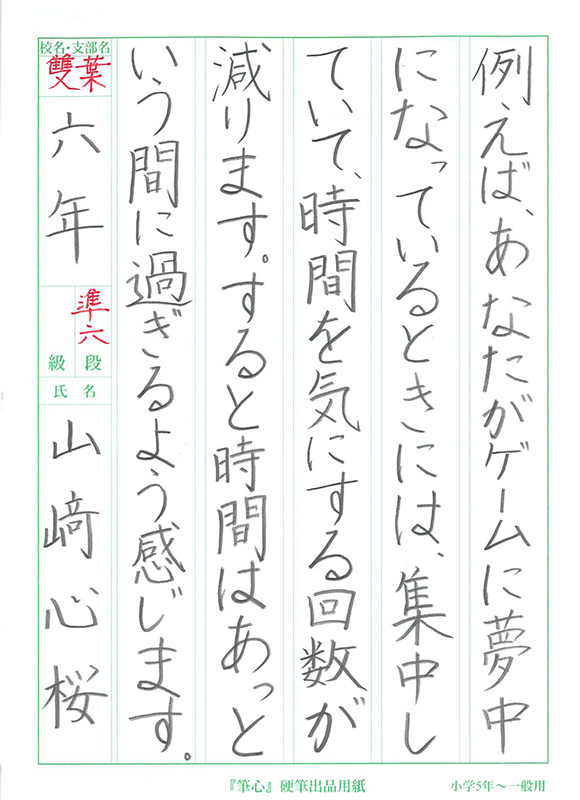 例えば、あなたがゲームに夢中
になっているときには、集中し
ていて、時間を気にする回数が
減ります。すると時間はあっと
いう間に過ぎるよう感じます。
校名・支部名
雙葉
六年
準六
級段
氏名
山﨑心桜
『筆心』硬筆出品用紙
小学5年～一般用